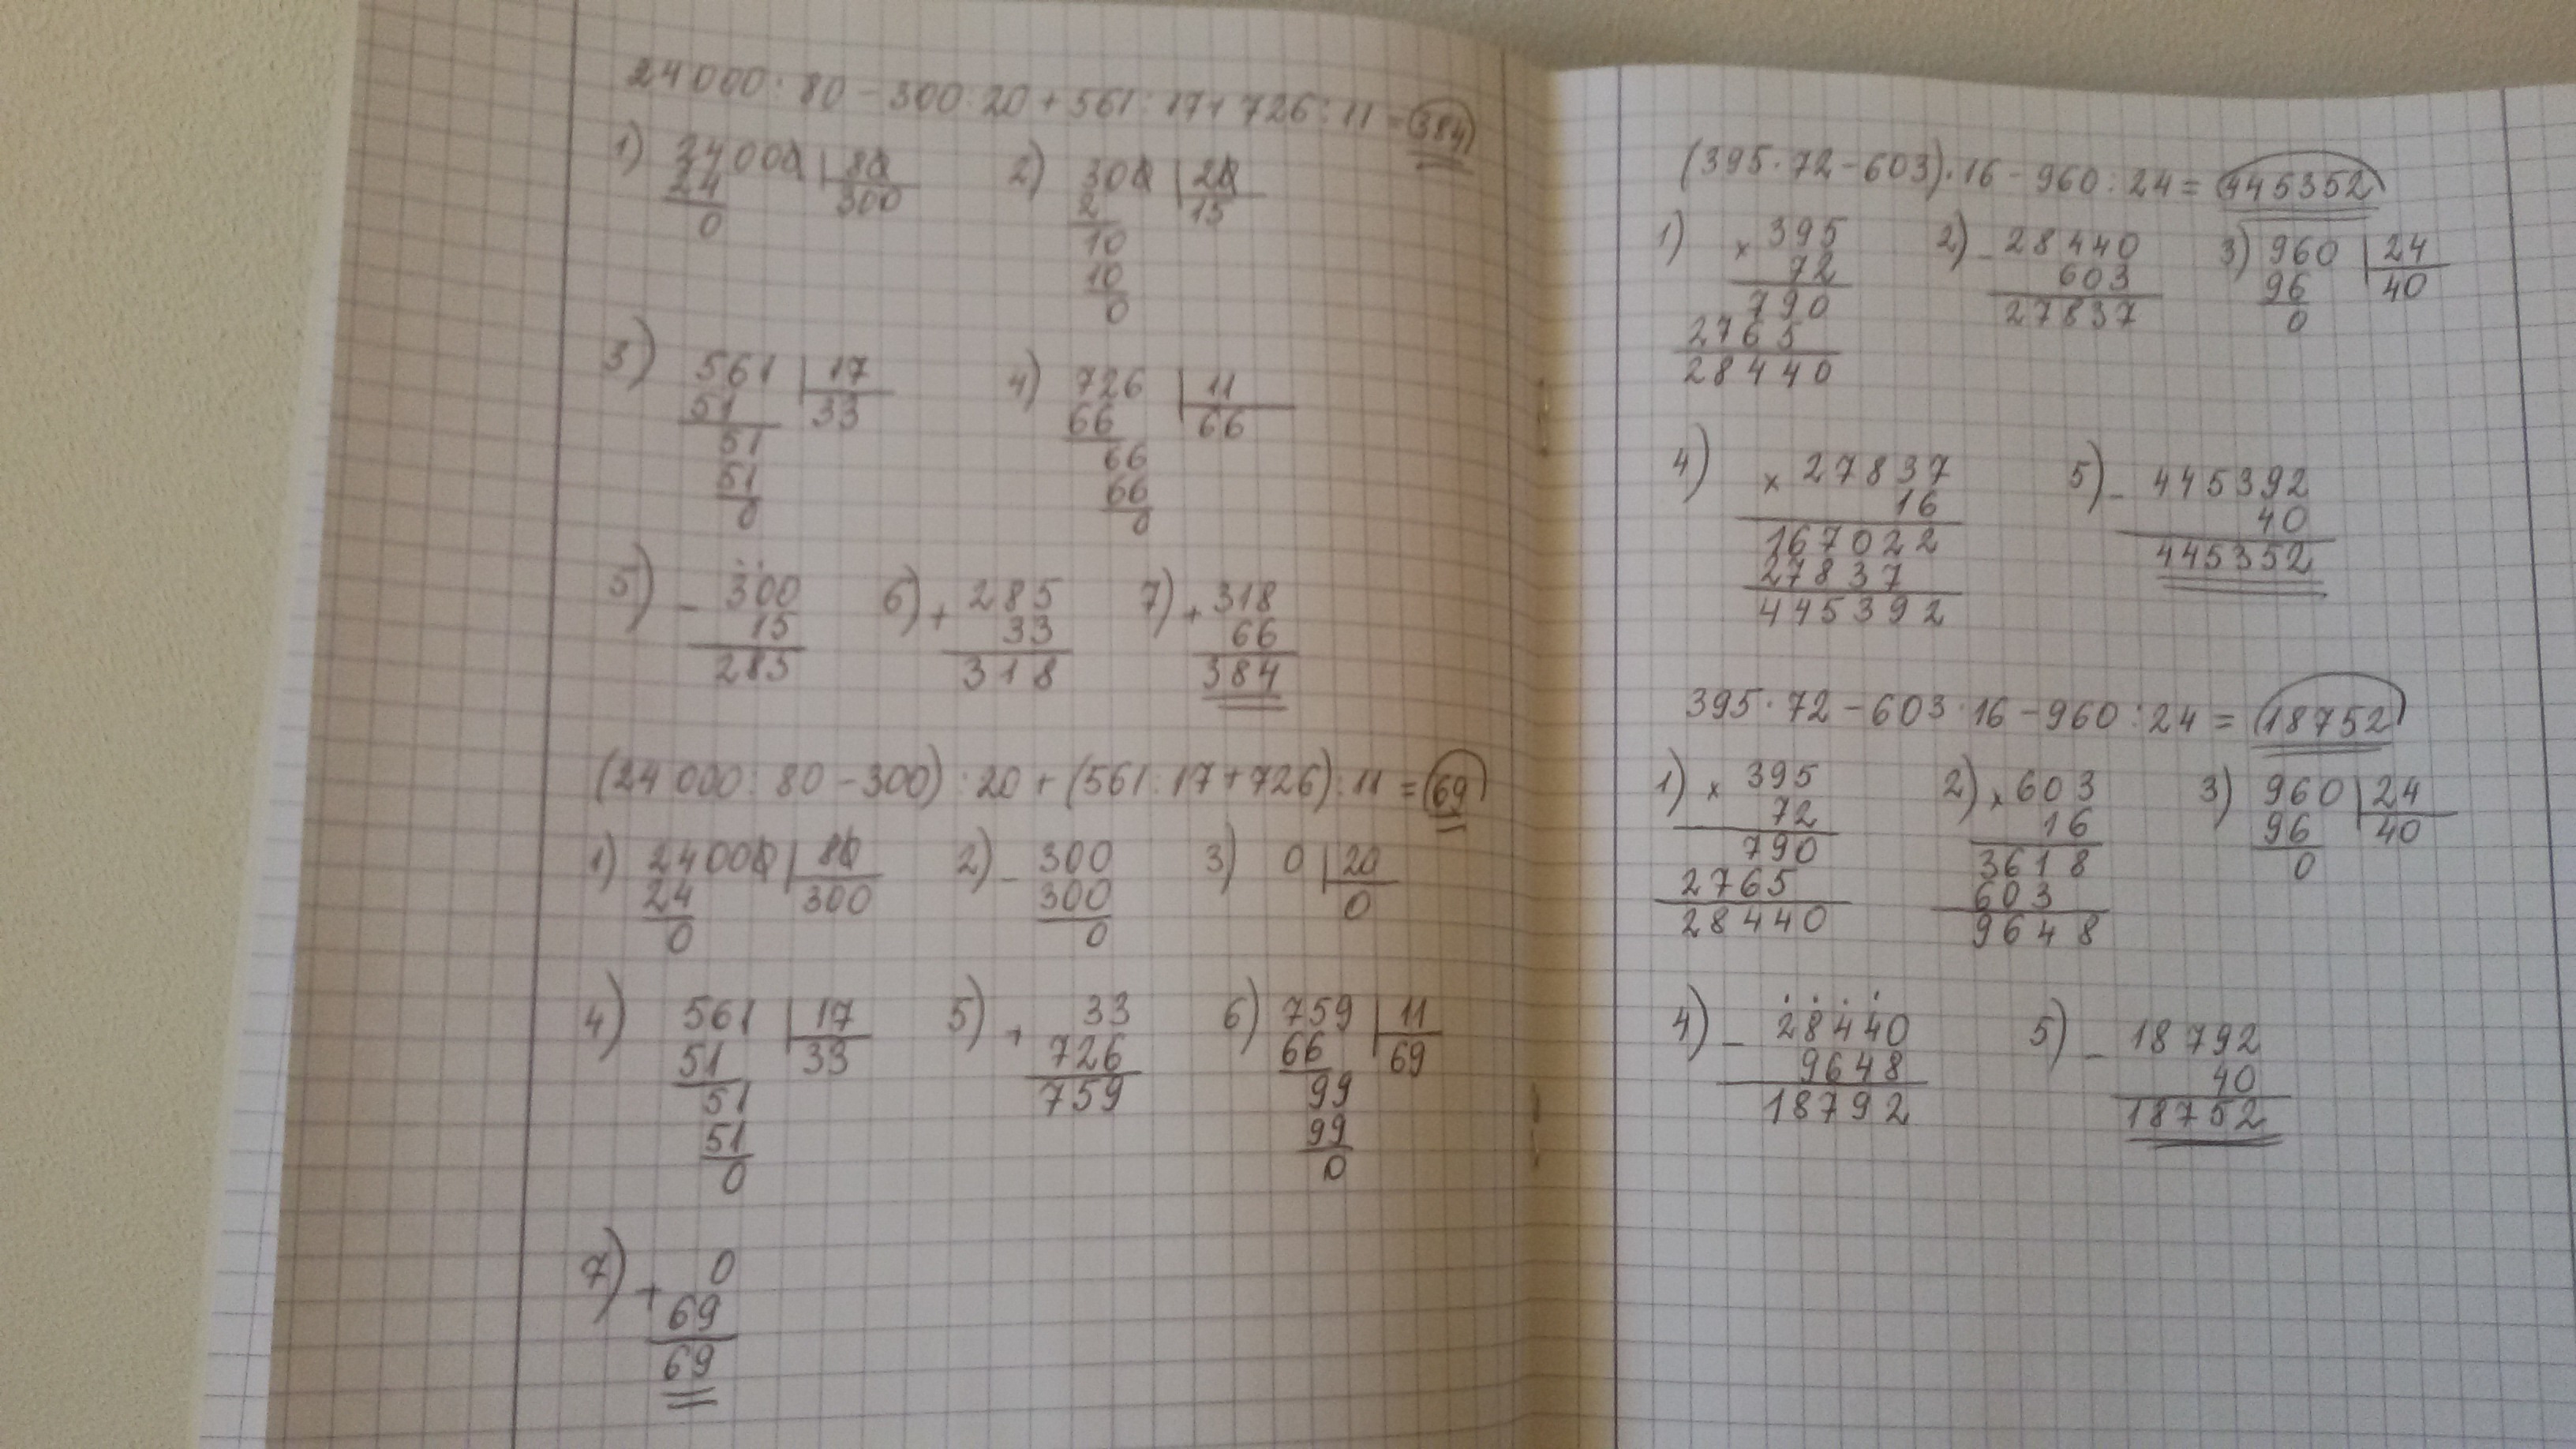 24000 : 80 - 300 : 20 + 561 : 17 + 726 : 11 = 384
1) 24000 | 80 2) 300 | 20
24 300 2 15
0 10
10
0
3) 561 | 17 4) 726 | 11
51 33 66 66
51 66
51 66
0 0
5) - 300 6) + 285 7) + 318
15 33 66
285 318 384
(24000 : 80 - 300) : 20 + (561 : 17 + 726) : 11 = 69
1) 24000 | 80 2) - 300 3) 0 | 20
24 300 300 0
0 0
4) 561 | 17 5) + 33 6) 759 | 11
51 33 726 66 69
51 759 99
51 99
0 0
7) + 0
69
69
(395 · 72 - 603) · 16 - 960 : 24 = 445352
1) × 395 2) - 28440 3) 960 | 24
72 603 96 40
790 27837 0
2765
28440
4) × 27837 5) - 445392
16 40
167022 445352
27837
445392
395 · 72 - 603 · 16 - 960 : 24 = 18752
1) × 395 2) × 603 3) 960 | 24
72 16 96 40
790 3618 0
2765 603
28440 9648
4) - 28440 5) - 18792
9648 40
18792 18752